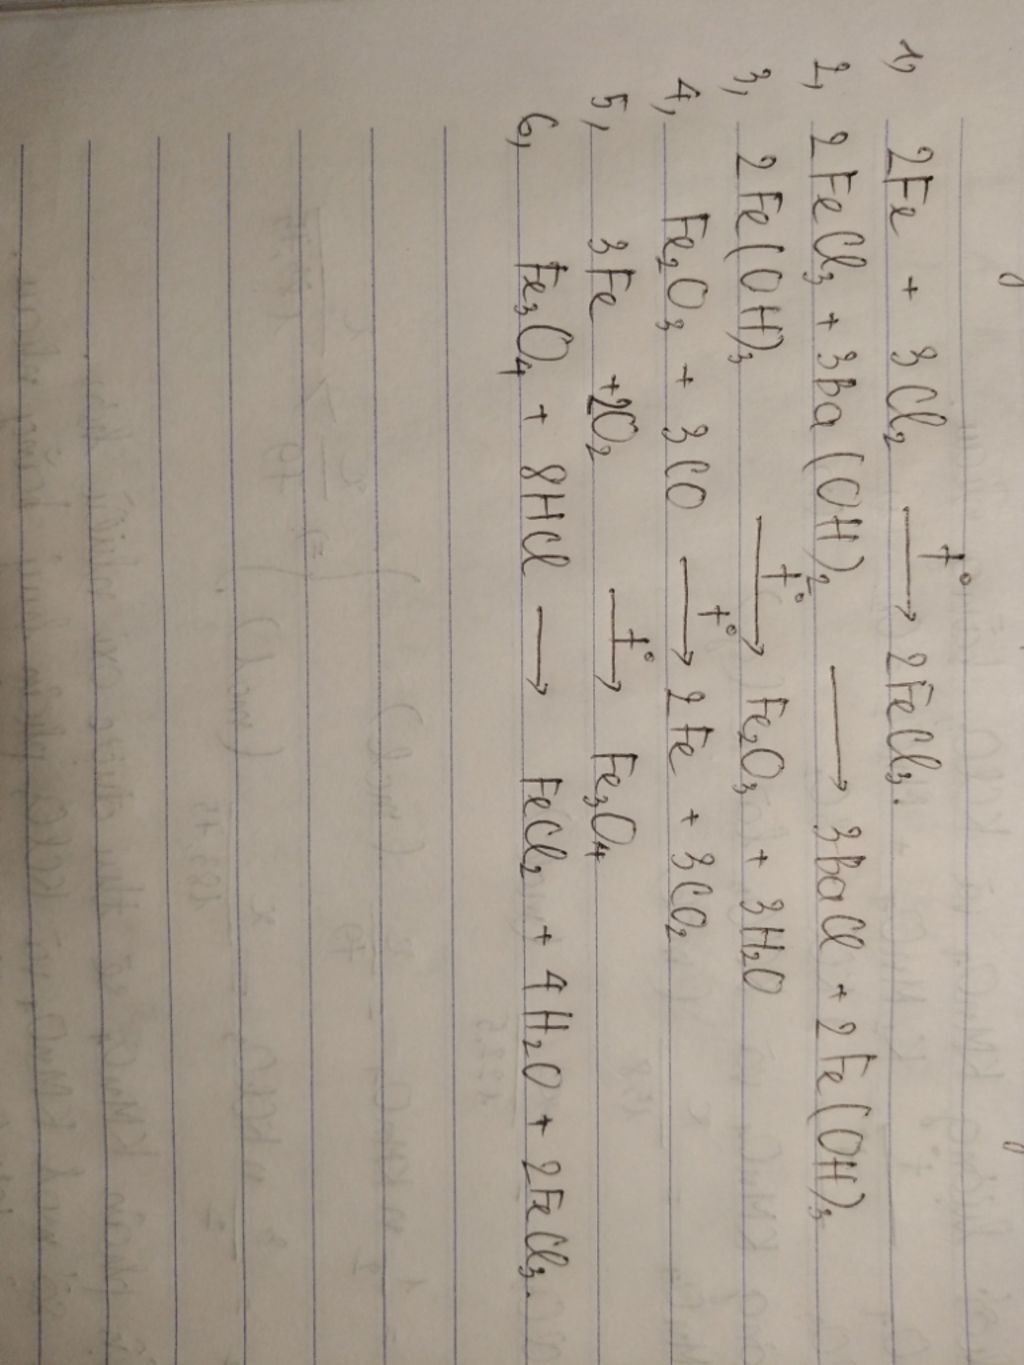 1, 2Fe + 3Cl₂ —t°→ 2FeCl₃.
2, 2FeCl₃ + 3Ba(OH)₂ ⟶ 3BaCl + 2Fe(OH)₃
3, 2Fe(OH)₃ —t°→ Fe₂O₃ + 3H₂O
4, Fe₂O₃ + 3CO —t°→ 2Fe + 3CO₂
5, 3Fe +2O₂ —t°→ Fe₃O₄
6, Fe₃O₄ + 8HCl ⟶ FeCl₂ + 4H₂O + 2FeCl₃.